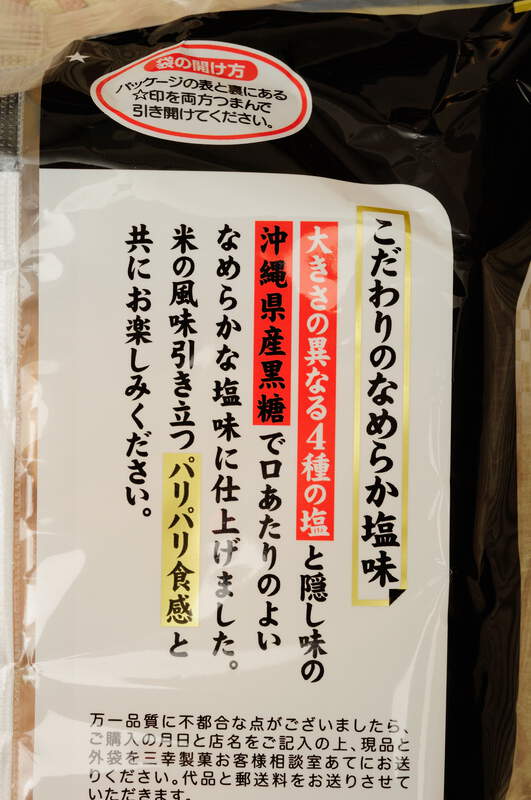 袋の開け方
パッケージの表と裏にある
☆印を両方つまんで
引き開けてください。
こだわりのなめらか塩味
大きさの異なる4種の塩と隠し味の
沖縄県産黒糖で口あたりのよい
なめらかな塩味に仕上げました。
米の風味引き立つパリパリ食感と
共にお楽しみください。
万一品質に不都合な点がございましたら、
ご購入の月日と店名をご記入の上、現品と
外袋を三幸製菓お客様相談室あてにお送
りください。代品と郵送料をお送りさせて
いただきます。